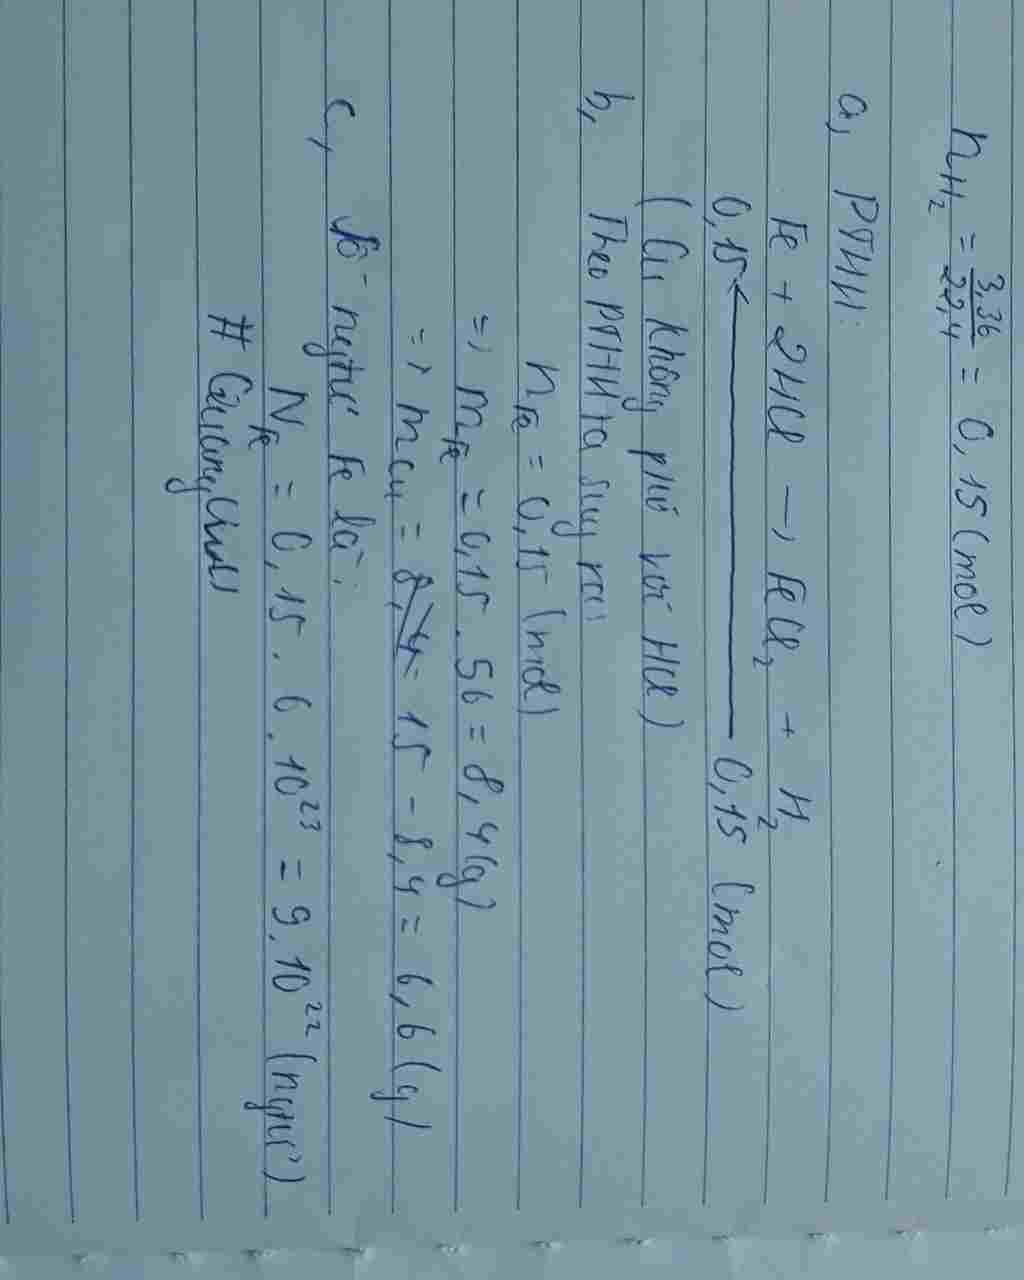 nH₂ = 3,36/22,4 = 0,15 (mol)
a, PTHH:
Fe + 2HCl → FeCl₂ + H₂
0,15 ← 0,15 (mol)
( Cu không phứ với HCl )
b, Theo PTHH ta suy ra:
nFe = 0,15 (mol)
=> mFe = 0,15 . 56 = 8,4 (g)
=> mCu = 15 - 8,4 = 6,6 (g)
c, Số ngtử Fe là:
NFe = 0,15 . 6 . 10²³ = 9 . 10²² (ngtử)
#